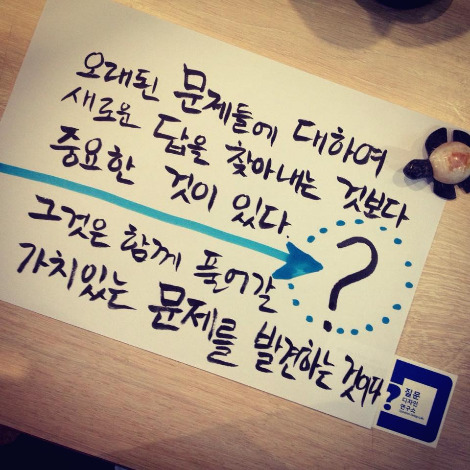 오래된 문제들에 대하여
새로운 답을 찾아내는 것보다
중요한 것이 있다.
?
그것은 함께 풀어갈
가치있는 문제를 발견하는 것이다
?
질문
디자인
연구소